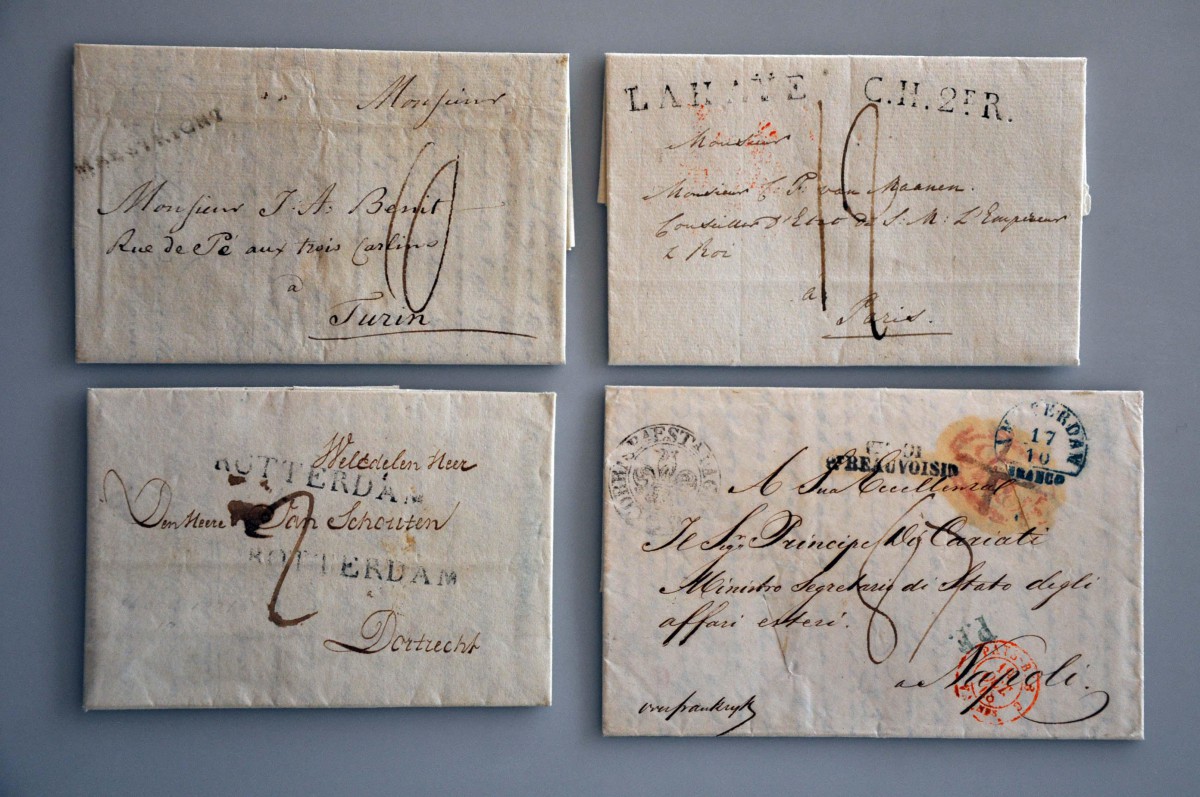 Monsieur
MAESTRICHT
Monsieur J. A. Benit
Rue de Pé aux trois Carlins
10
à
Turin
LAHAYE C.H. 2E R.
Monsieur
Monsieur C. F. van Maanen.
Conseiller d'Etat de S. M. L'Empereur
& Roi
à
Paris.
Weledelen Heer
ROTTERDAM
Den Heere Jan Schouten
2
ROTTERDAM
a
Dortrecht
AMSTERDAM
17
10
FRANCO
BEAUVOISIN
A Sua Eccellenza
Il Sigr. Principe Di Cariati
Ministro Segretario di Stato degli
affari esteri.
P.P.
PAYS-BAS
a Napoli.
over frankryk